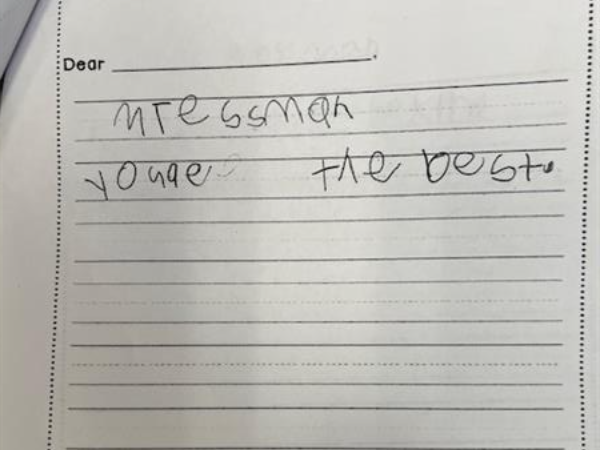 Dear ____________.
mressman
youae the best.